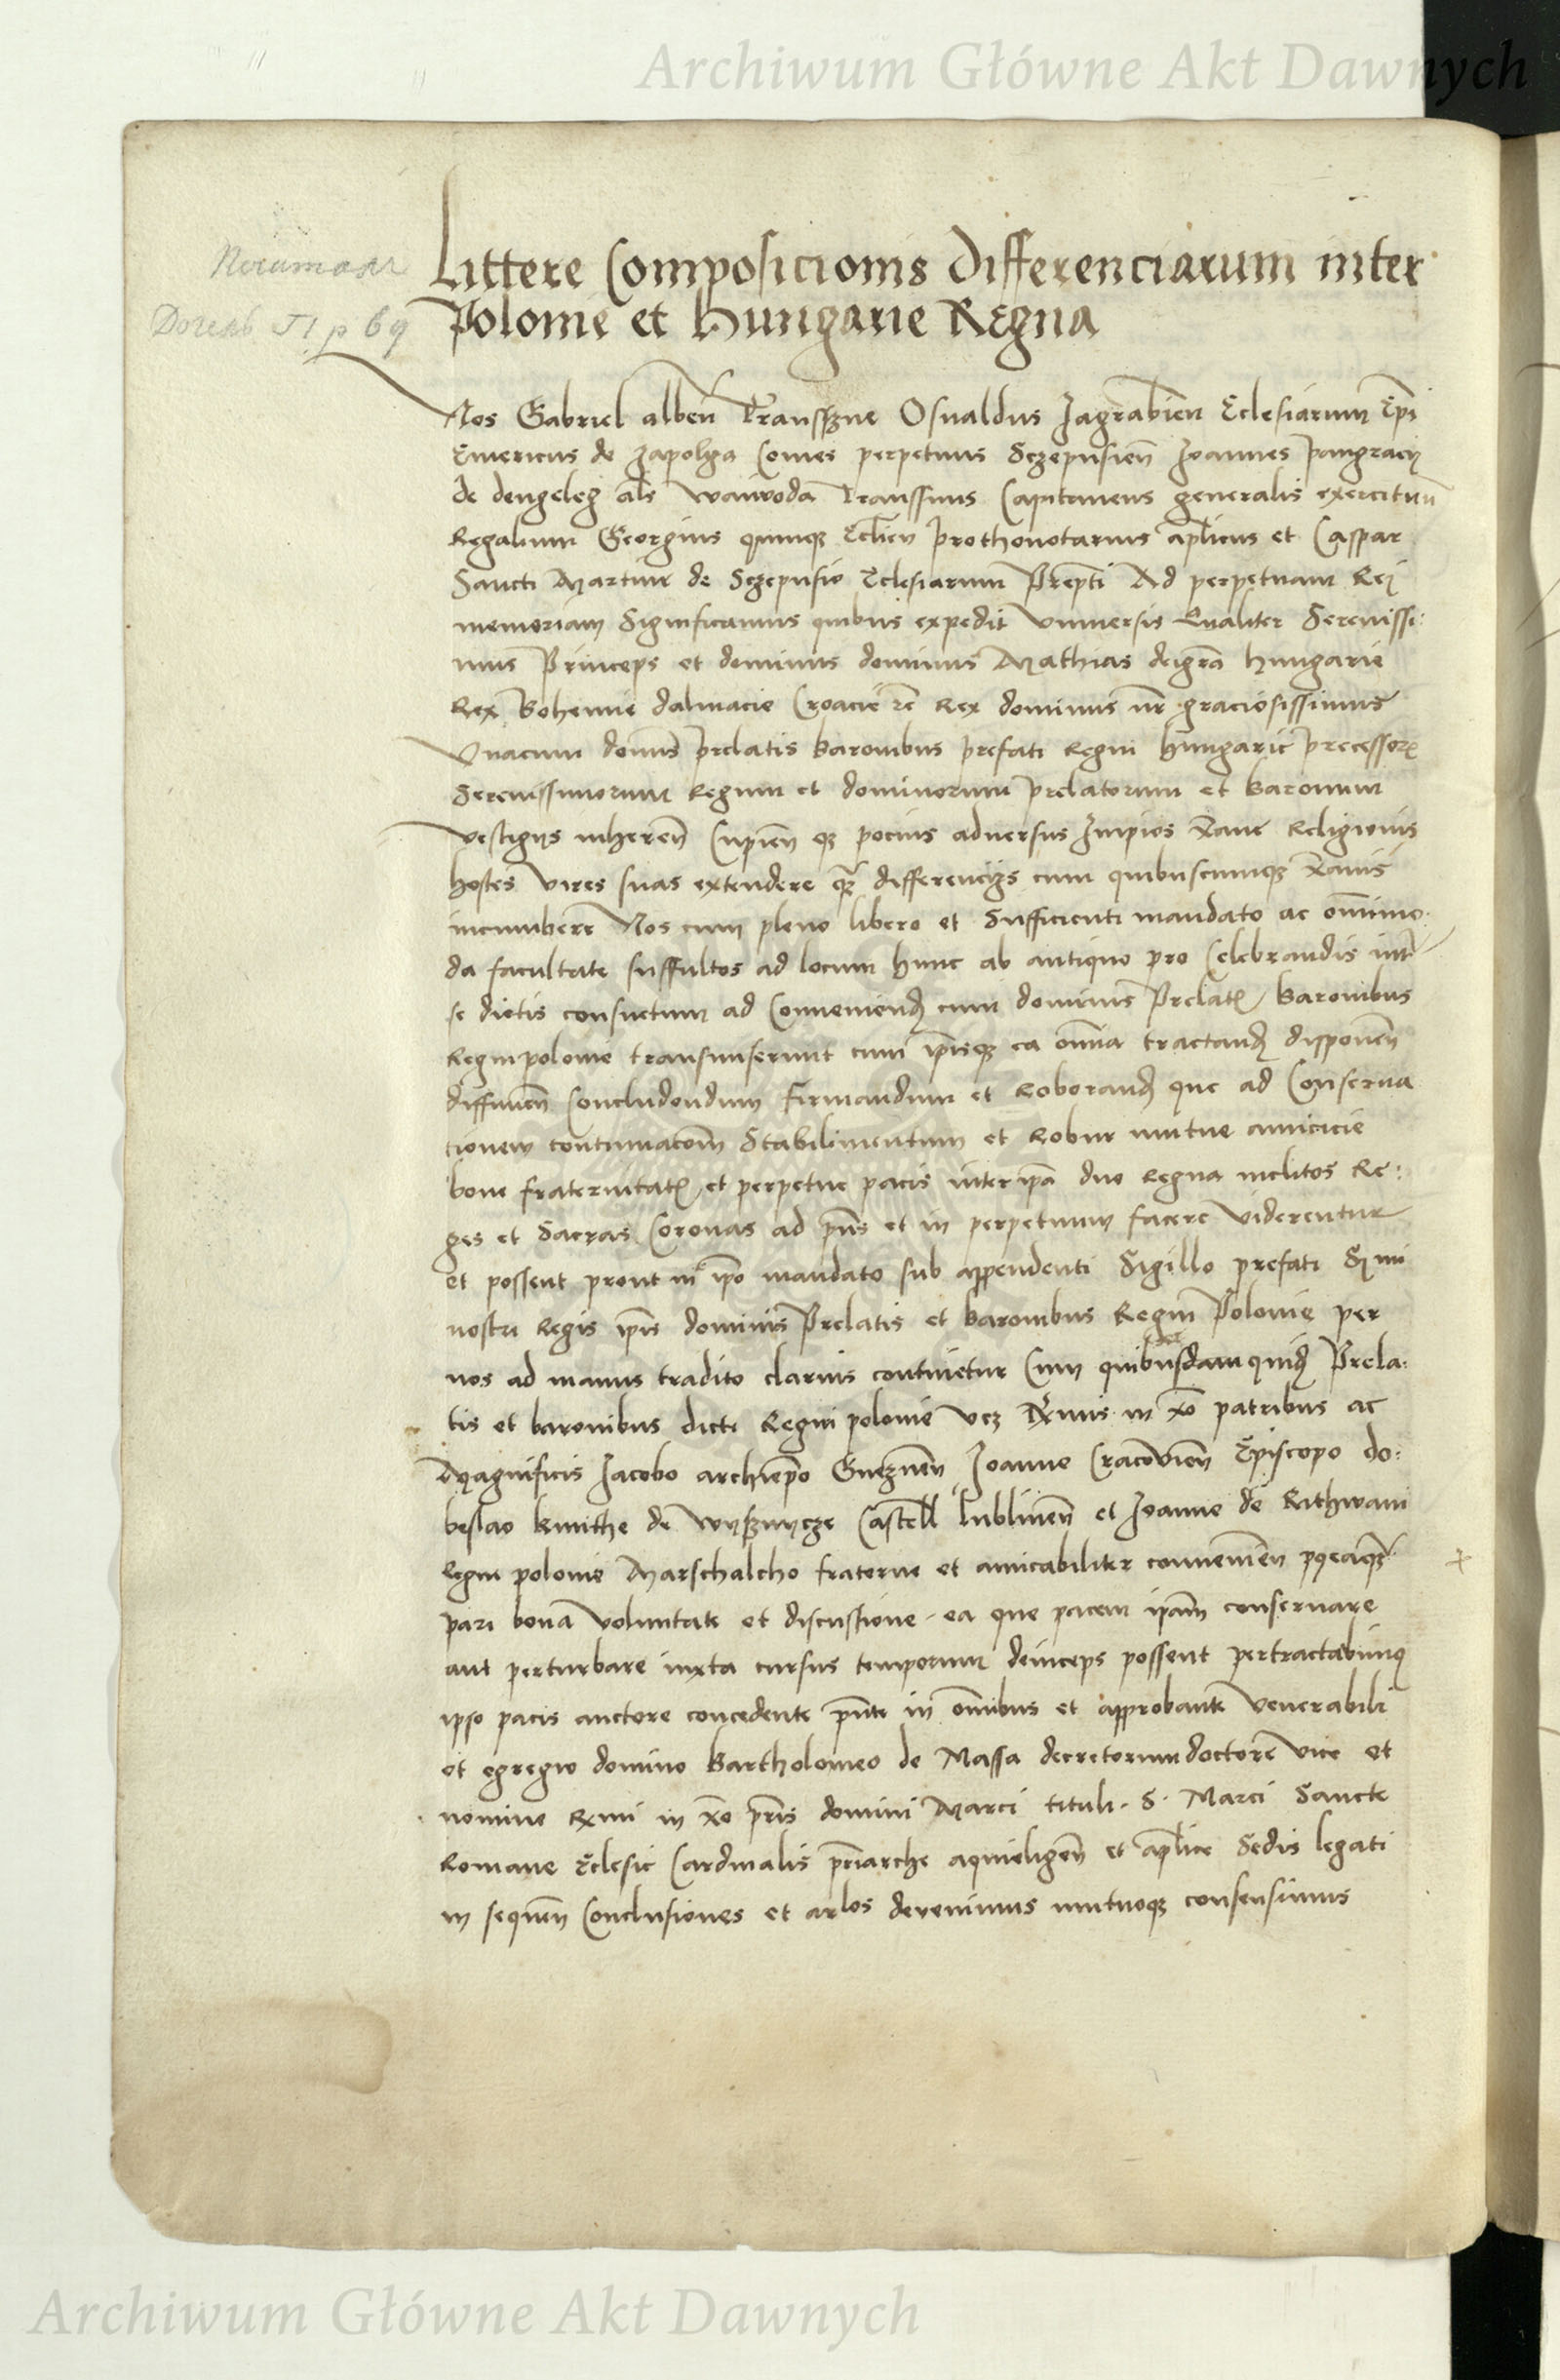 Archiwum Główne Akt Dawnych
Littere Composicionis Differenciarum inter
Polonie et Hungarie Regna
Dogiel T1 p 69
Nos Gabriel alben Transszne Osvaldus Zagrabien Eclesiarum Epi
Emericus de Zapolya Comes perpetuus Sczepusien Joannes pangracij
de dengeleg als waivoda Transsiuus Capitaneus generalis exercituu
Regalium Georgius quinque Eclien prothonotarius aplicus et Caspar
Sancti Martini de Sczepusio Eclesiarum Prepti Ad perpetuam Rei
memoriam Significamus quibus expedit Vniuersis Qualiter Serenissi:
mus Princeps et dominus dominus Mathias deigra hungarie
Rex Bohemie dalmacie Croacie etc Rex dominus nr graciosissimus
Vnacum domis prelatis baronibus prefati Regni hungarie precessorz
Serenissimorum Regum et dominorum prelatorum et baronum
vestigijs inheren Cupien qz pocius aduersus Impios xane Religionis
hostes vires suas extendere qz differencijs cum quibuscumqz xanis
incumbere Nos cum pleno libero et Sufficienti mandato ac omnimo
da facultate suffultos ad locum hunc ab antiquo pro Celebrandis int
se dietis consuetum ad Conueniend cum dominis Prelatz baronibus
Regni polonie transmiserunt cum ipisqz ea omnia tractand disponen
diffinien Concludendum Firmandum et Roborand que ad Conserua
tionem continuacom Stabilimentum et Robur mutue amicicie
bone fraternitatz et perpetue pacis inter ipa duo Regna inclitos Re:
ges et Sacras Coronas ad pns et in perpetuum facere viderentur
et possent prout in ipo mandato sub appendenti Sigillo prefati Smi
nostri Regis ipis dominis Prelatis et baronibus Regni Polonie per
nos ad manus tradito clarius continetur Cum quibusdam quid Prela:
tis et baronibus dicti Regni polonie vcz Rmis in xo patribus ac
Magnificis Jacobo archiepo Gneznen Joanne Cracouien Episcopo do:
beslao kmithe de wyssnycze Castell lublinen et Joanne de Rithwani
Regni polonie Marschalcho fraterne et amicabiliter conuenien
pari bona voluntate et discussione ea que pacem ipam conseruare
aut perturbare iuxta cursus temporum deinceps possent pertractabimus
ipso pacis auctore concedente pnte in omibus et approbante Venerabili
et egregio domino Bartholomeo de Massa decretorum doctore vice et
nomine Rmi in xo pris domini Marci tituli S. Marci Sancte
Romane Eclesie Cardinalis priarche aquielgen et aplice Sedis legati
in sequen Conclusiones et arlos devenimus mutuoqz consensimus
Archiwum Główne Akt Dawnych